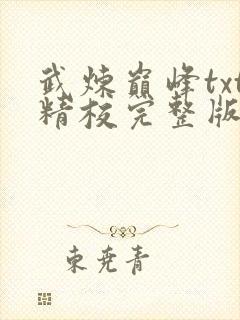 武炼巅峰txt
精校完整版
东尧青